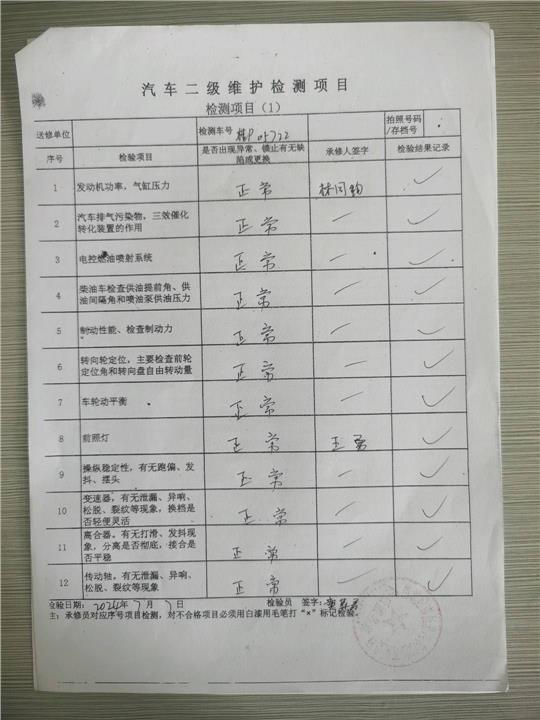 汽车二级维护检测项目
检测项目（1）
送修单位 检测车号 05722 拍照号码/存档号
序号 检验项目 是否出现异常、锁止有无缺陷或更换 承修人签字 检验结果记录
1 发动机功率，气缸压力 正常 ✓
2 汽车排气污染物，三效催化转化装置的作用 正常 — ✓
3 电控燃油喷射系统 正常 — ✓
4 柴油车检查供油提前角、供油间隔角和喷油泵供油压力 正常 — ✓
5 制动性能、检查制动力 正常 — ✓
6 转向轮定位，主要检查前轮定位角和转向盘自由转动量 正常 — ✓
7 车轮动平衡 正常 — ✓
8 前照灯 正常 王勇 ✓
9 操纵稳定性，有无跑偏、发抖、摆头 正常 — ✓
10 变速器，有无泄漏、异响、松脱、裂纹等现象，换档是否轻便灵活 正常 — ✓
11 离合器，有无打滑、发抖现象，分离是否彻底，接合是否平稳 正常 — ✓
12 传动轴，有无泄漏、异响、松脱、裂纹等现象 正常 — ✓
检验日期：年7月7日 检验员 签字：
注：承修员对应序号项目检测，对不合格项目必须用白漆用毛笔打“×”标记检验。